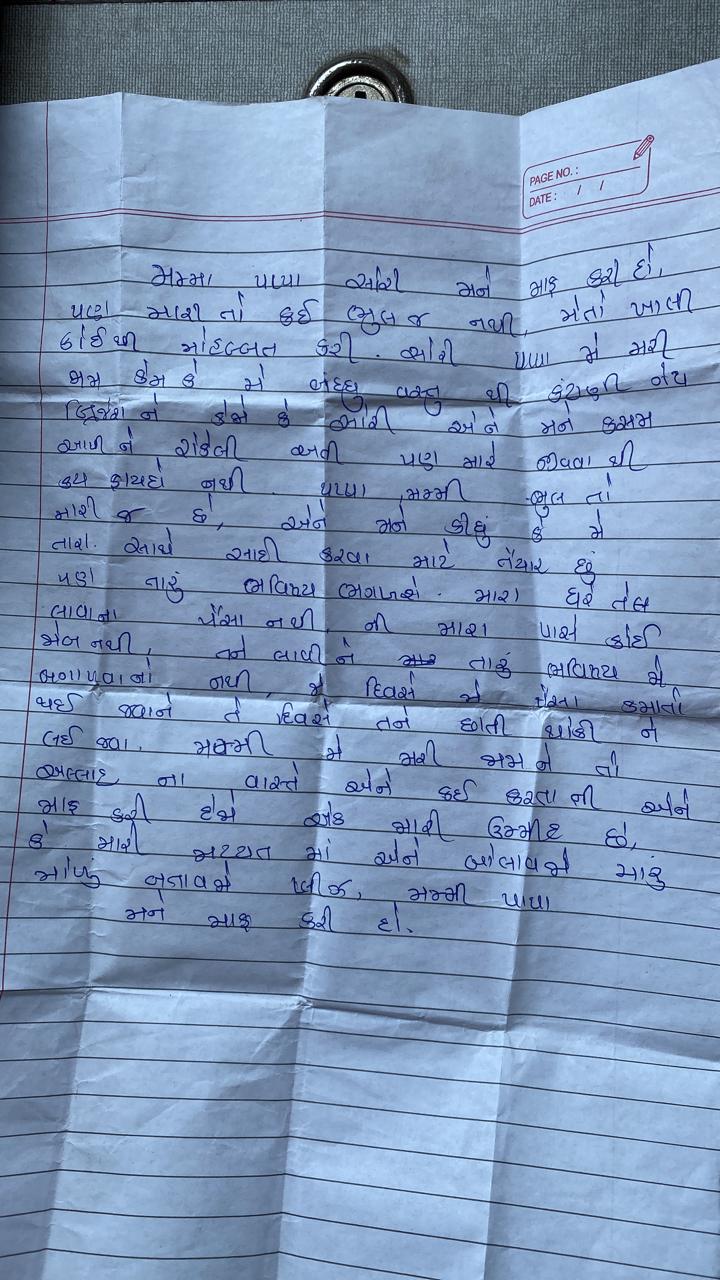 PAGE NO. :
DATE : / /
મમ્મા પપ્પા સોરી મને માફ કરી દો,
પણ મારી તો કઈ ભુલ જ નથી, મેતો ખાલી
કોઈ થી મોહબ્બત કરી. સોરી પપ્પા મે મરી
કેમ કે મે વસ્તુ થી
ને કેજો કે સોરી એને મને કસમ
આપી ને રોકેલી હતી પણ મારે જીવવા થી
કય ફાયદો નથી. પપ્પા, મમ્મી ભુલ તો
મારી જ છે, એને મને કીધું કે મે
તારા સાથે શાદી કરવા માટે તૈયાર છું
પણ તારું ભવિષ્ય. મારા ઘરે તેલ
લાવાના પૈસા નથી, ની મારા પાસે કોઈ
જોબ નથી, તને લાવી ને તારું ભવિષ્ય મે
નથી, જે દિવસે મે પૈસા કમાતો
થઈ જવાને તે દિવસે તને છાતી ઠોકી ને
લઈ જવા. મમ્મી મે મરી જામ ને તો
અલ્લાહ ના વાસ્તે એને કઈ કરતા ની એને
માફ કરી દેજો એક મારી ઉમ્મીદ છે,
કે મારી મય્યત માં એને બોલાવજો મારું
બનાવજો પ્લીજ, મમ્મી પાપા
મને માફ કરી દો.